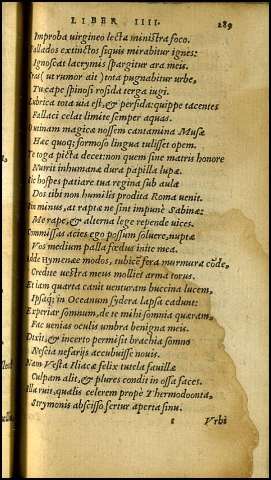 LIBER IIII. 289
Improba uirgineo lecta ministra foco.
Pallados extinctos siquis mirabitur ignes:
Ignoscat lacrymis spargitur ara meis.
Cras (ut rumor ait) tota pugnabitur urbe,
Tu cape spinosi rosida terga iugi.
Lubrica tota uia est, & perfida: quippe tacentes
Fallaci celat limite semper aquas.
O utinam magicæ nossem cantamina Musæ
Hæc quoq; formoso lingua tulisset opem.
Te toga picta decet: non quem sine matris honore
Nutrit inhumanæ dura papilla lupæ.
Sic hospes patiare tua regina sub aula
Dos tibi non humilis prodita Roma uenit.
Sin minus, at raptæ ne sint impunè Sabinæ:
Me rape, & alterna lege repende uices.
Commissas acies ego possum soluere, nuptæ
Vos medium palla fœdus inite mea.
Adde Hymenæe modos, tubicē fera murmura cōde,
Credite uestra meus molliet arma torus.
Et iam quarta canit uenturam buccina lucem,
Ipsaq; in Oceanum sydera lapsa cadunt:
Experiar somnum, de te mihi somnia quæram,
Fac uenias oculis umbra benigna meis.
Dixit, & incerto permisit brachia somno
Nescia nefarijs accubuisse nouis.
Nam Vesta Iliacæ felix tutela fauillæ
Culpam alit, & plures condit in ossa faces.
Illa ruit, qualis celerem propè Thermodoonta,
Strymonis abscisso fertur aperta sinu.
Vrbi